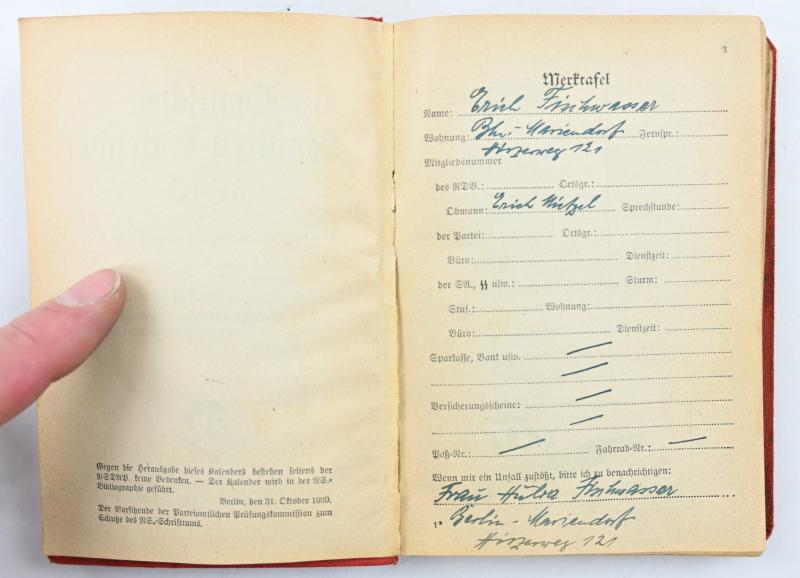 Gegen die Herausgabe dieses Kalenders bestehen seitens der
NSDAP. keine Bedenken. — Der Kalender wird in der NS.-
Bibliographie geführt.
Berlin, den 31. Oktober 1939.
Der Vorsitzende der Parteiamtlichen Prüfungskommission zum
Schutze des NS.-Schrifttums.
3
Merktafel
Name: Erich Fischwasser
Wohnung: Bln.-Mariendorf Fernspr.:
121
Mitgliedsnummer
des RDB.: Ortsgr.:
Obmann: Erich Sprechstunde:
der Partei: Ortsgr.:
Büro: Dienstzeit:
der SA., SS usw.: Sturm:
Stuf.: Wohnung:
Büro: Dienstzeit:
Sparkasse, Bank usw. —
—
Versicherungsscheine: —
—
Paß-Nr.: — Fahrrad-Nr.: —
Wenn mir ein Unfall zustößt, bitte ich zu benachrichtigen:
Frau Fischwasser
1* Berlin-Mariendorf
121